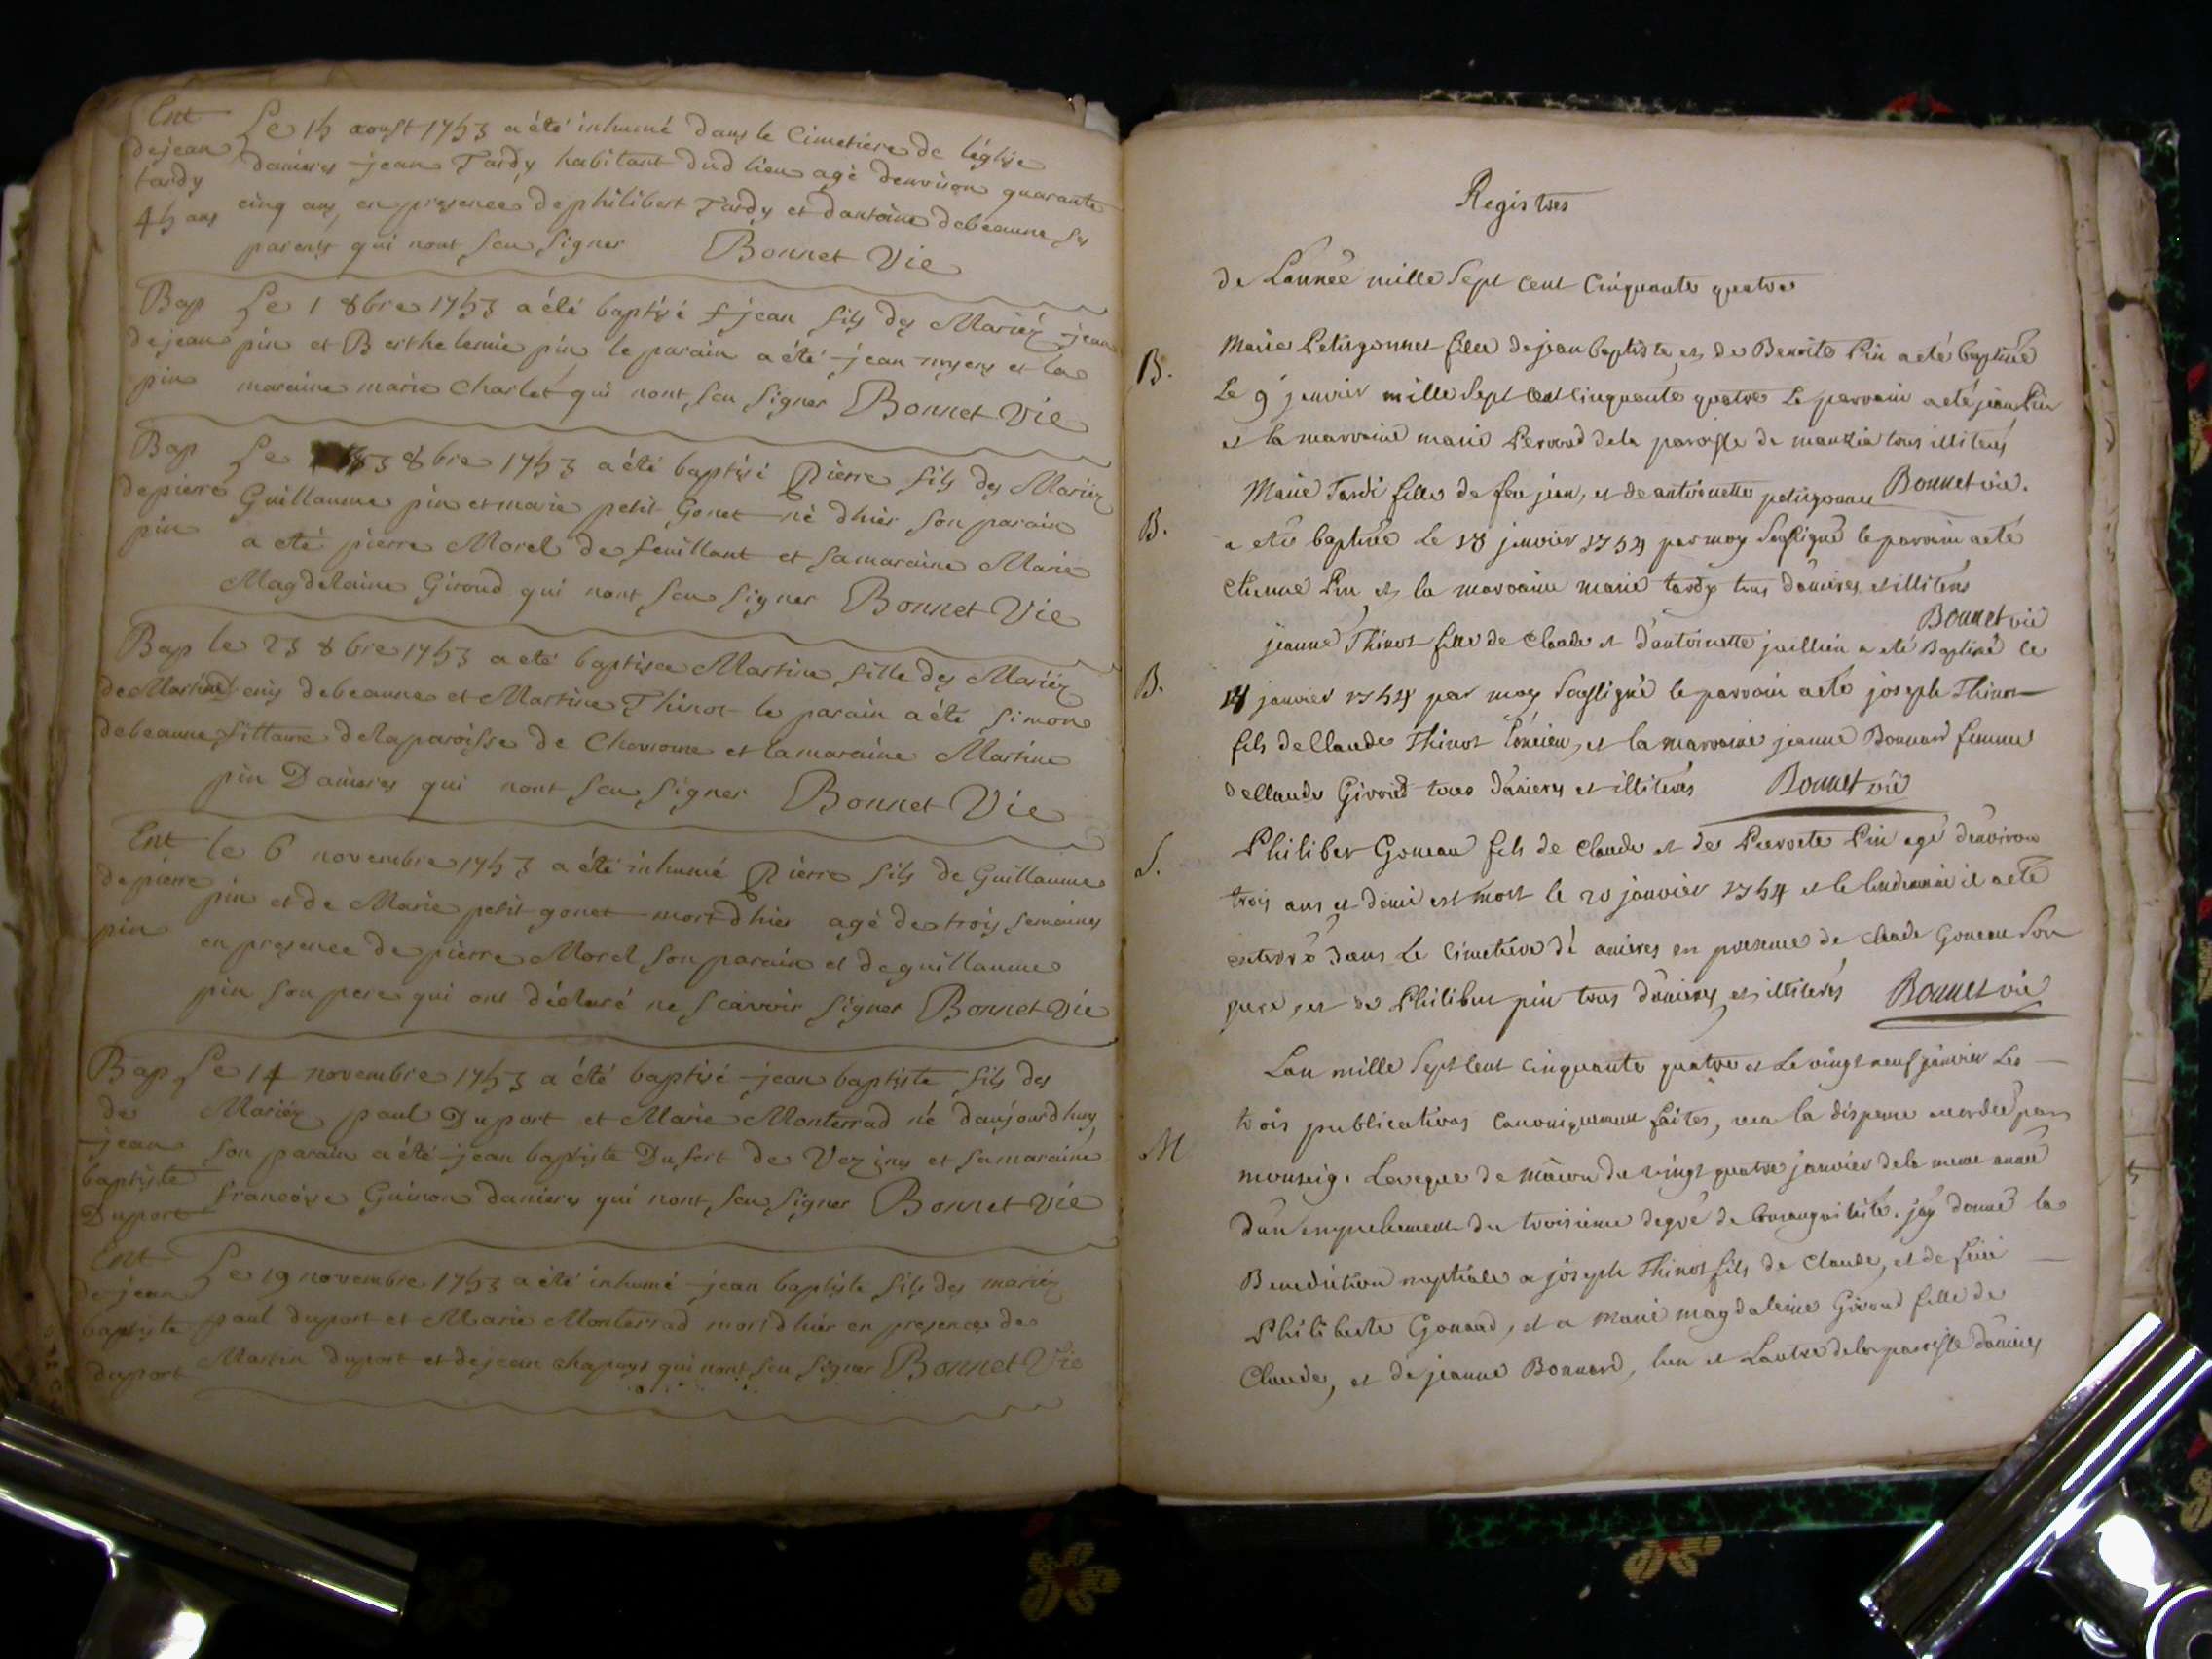 Ent
de jean
tardy
45 ans
Le 15 aoust 1753 a été inhumé dans le Cimetière de l'église
danieres jean Tardy habitant dud lieu agé denviron quarante
cinq ans en presence de philibert Tardy et dantoine debeaune ses
parents qui nont sçu signer Bonnet Vic
Bap
de jean
pin
Le 1 8bre 1753 a été baptisé jean fils des Mariéz jean
pin et Berthelemie pin le parain a été jean et la
maraine marie Charlet qui nont sçu signer Bonnet Vic
Bap
de pierre
pin
Le 8bre 1753 a été baptisé Pierre fils des Mariéz
Guillaume pin et marie petit Gonet né dhier son parain
a eté pierre Morel de feuillant et sa maraine Marie
Magdelaine Giroud qui nont sçu signer Bonnet Vic
Bap
de Martine
debeaune
le 23 8bre 1753 a eté baptisée Martine fille des Mariéz
denis debeaune et Martine Thinot le parain a été simon
de la paroisse de et la maraine Martine
pin Danieres qui nont sçu signer Bonnet Vic
Ent
de pierre
pin
le 6 novembre 1753 a été inhumé Pierre fils de Guillaume
pin et de Marie petit gonet mort dhier agé de trois semaines
en presence de pierre Morel son parain et de guillaume
pin son pere qui ont déclaré ne scavoir signer Bonnet Vic
Bap
de
jean
baptiste
Duport
Le 14 novembre 1753 a été baptisé jean baptiste fils des
Mariéz paul Duport et Marie Monterrad né daujourdhuy
son parain a été jean baptiste Dufort de Vezines et sa maraine
francoise Guinon danieres qui nont sçu signer Bonnet Vic
Ent
de jean
baptiste
duport
Le 19 novembre 1753 a été inhumé jean baptiste fils des mariéz
paul duport et Marie Monterrad mort dhier en presence de
Martin duport et de jean chapuys qui nont sçu signer Bonnet Vic
Registres
de Lannée mille sept cent cinquante quatre
B.
Marie Petitgonnet fille de jean baptiste et de Benoite Pin a eté baptisée
Le 9 janvier mille sept cent cinquante quatre Le parrain a eté jean Pin
et la marraine marie Perroud de la paroisse de manziat tous illiterés
Bonnet vic.
B.
Marie Tardi fille de feu jean, et de antoinette petitgonnet
a eté baptisée Le 18 janvier 1754 par moy soussigné le parrain a eté
etienne Pin et la marraine marie tardy tous danieres et illiterés
Bonnet vic
B.
jeanne Thinot fille de Claude et d'antoinette juillien a eté Baptisé le
janvier 1754 par moy soussigné le parrain a eté joseph Thinot
fils de Claude Thinot l'ancien, et la marraine jeanne Bonnard femme
de Claude Giroud tous danieres et illiterés Bonnet vic
S.
Philibert Goneau fils de Claude et de Pierrette Pin agé denviron
trois ans et demi est mort le 20 janvier 1754 et le lendemain il a eté
enterré dans Le Cimetière d'anieres en presence de Claude Goneau son
pere, et de Philibert pin tous danieres et illiterés Bonnet vic
M
Lan mille sept cent cinquante quatre et Le vingt neuf janvier Les
trois publications canoniquement faites, vu la dispense accordée par
monseig. Leveque de mâcon du vingt quatre janvier de la meme année
d'un empechement du troisieme degré de Consanguinité. j'ay donné la
Benediction nuptiale a joseph Thinot fils de Claude, et de feüe
Philiberte Gonaud, et a Marie magdaleine Giroud fille de
Claude, et de jeanne Bonnard, l'un et Lautre de la paroisse danieres